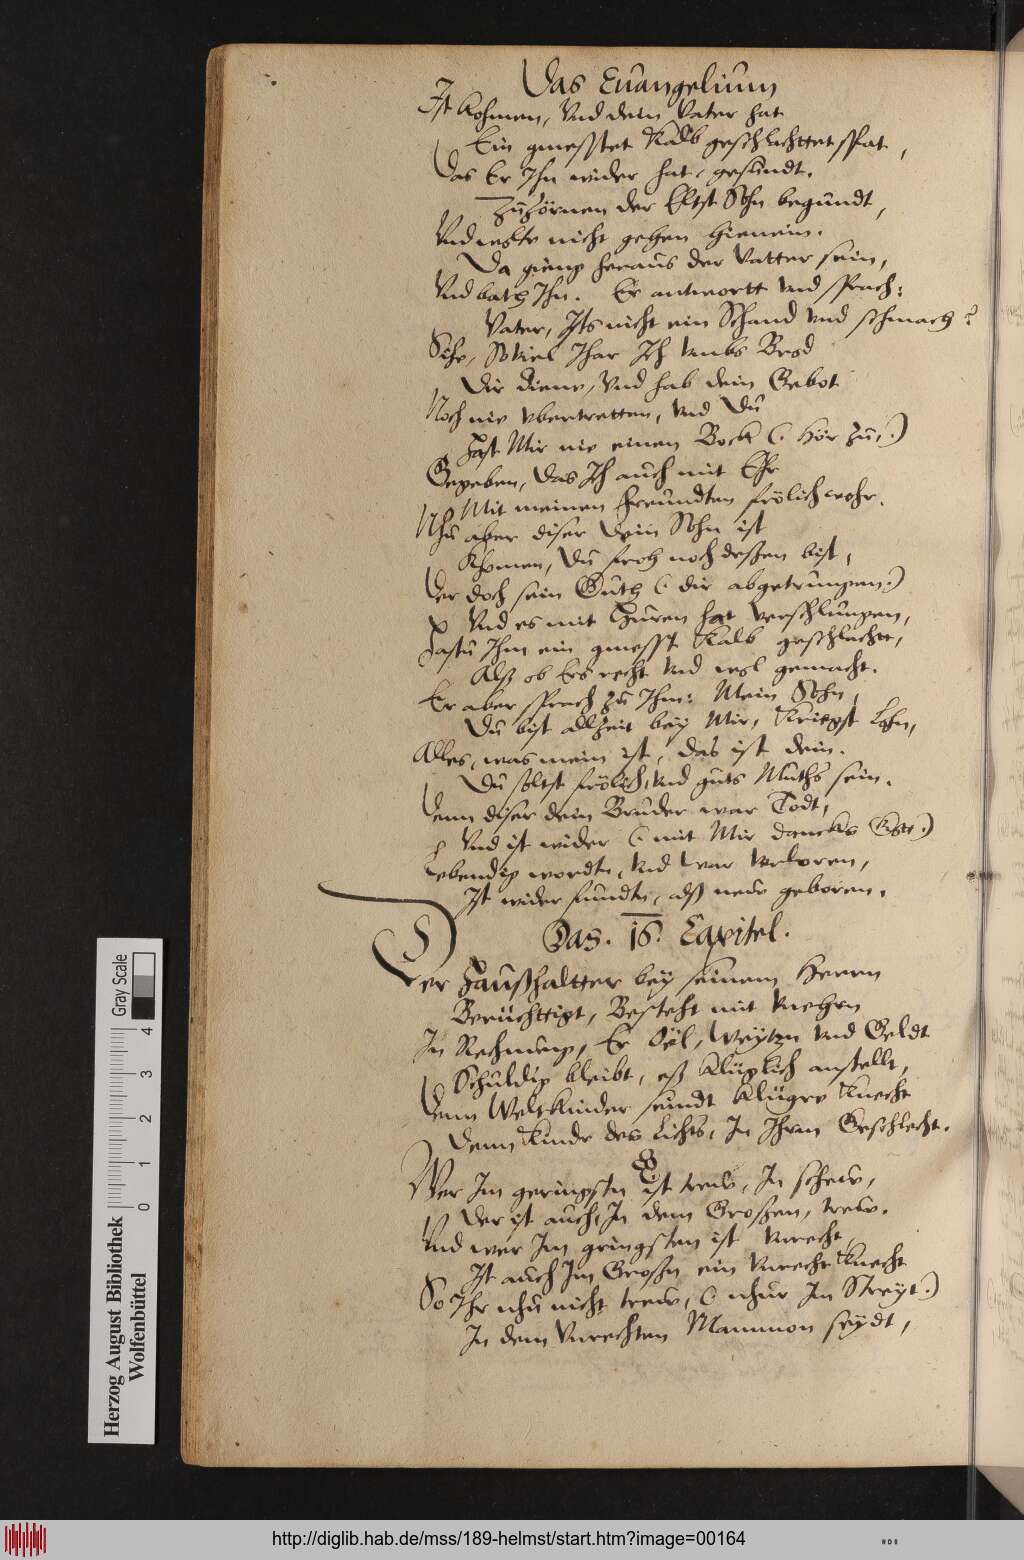 Das Euangelium
Ist kohmen, Vnd dein Vater hat
Ein gmesstet Kalb geschlachttet spat,
Das Er Ihn wider hat, gesundt.
Zuzörnen der Eltst Sohn begundt,
Vnd wolte nicht gehen hienein.
Da gieng heraus der Vatter sein,
Vnd bath Ihn. Er antwortt vnd sprach:
Vater, Ists nicht ein Schand vnd schmach?
Sihe, So viel Ihar Ich vmbs Brod
Dir diene, Vnd hab dein Gebot
Noch nie vbertretten, vnd Du
Hast Mir nie einen Bock (: hör zu, :)
Gegeben, Das Ich auch mit Ehr
Mit meinen freundten frölich wehr.
Nhu aber diser Dein Sohn ist
Khomen, Du froh noch deßen bist,
Der doch sein Guth (: dir abgetrungen :)
Vnd es mit Huren hat verschlungen,
Hastu Ihm ein gmesst Kalb geschlacht,
Alß ob Ers recht vnd wol gemacht.
Er aber sprach zu Ihm: Mein Sohn,
Du bist allzeit bey Mir, kriegst Lohn,
Alles, was mein ist, das ist dein.
Du soltst frölich, Vnd guts Muths sein.
Denn diser dein Bruder war Todt,
Vnd ist wider (: mit Mir dancks Gott :)
Lebendig wordn, Vnd war verloren,
Ist wider fundn, alß new geboren.
Das. 16. Capitel.
Der Haußhaltter bey seinem Herrn
Berüchttigt, Besteht mit vnehrn
In Rechnung, Er Oel, Weytzn vnd Geldt
Schuldig bleibt, eß klüglich anstellt,
Denn Weltkinder seindt klügre Knecht
Denn Kindr des Lichts, In Ihrm Geschlecht.
Wer Im geringstn ist trew, In schew,
Der ist auch, In dem Großen, trew.
Vnd wer Im gringsten ist vnrecht,
Ist auch Im Großn ein Vnrecht Knecht
So Ihr nhu nicht trew, (: nhur In Streyt :)
In dem Vnrechten Mammon seydt,
Gray Scale
4
3
2
1
0
Herzog August Bibliothek
Wolfenbüttel
http://diglib.hab.de/mss/189-helmst/start.htm?image=00164